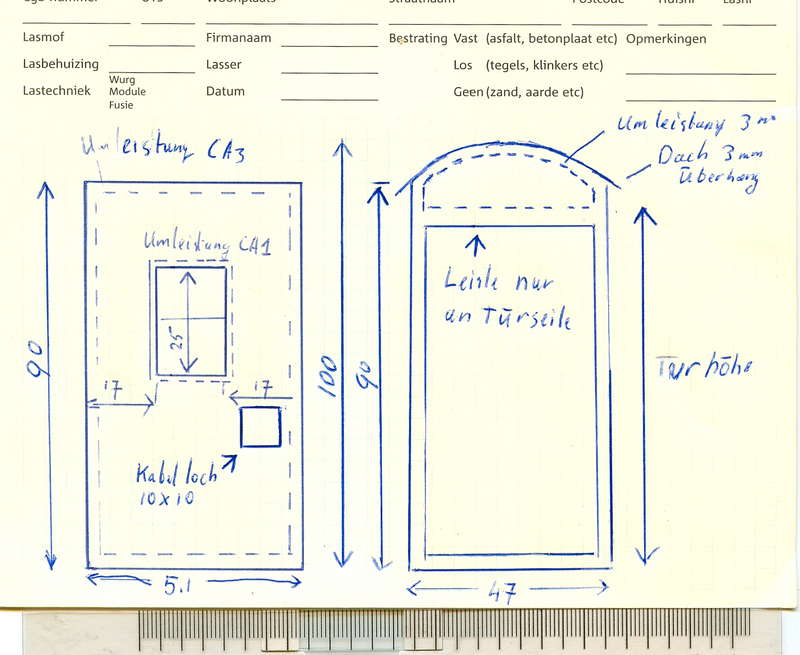 Lasmof
Firmanaam
Bestrating Vast (asfalt, betonplaat etc) Opmerkingen
Lasbehuizing
Lasser
Los (tegels, klinkers etc)
Lastechniek
Wurg
Module
Fusie
Datum
Geen (zand, aarde etc)
Umleistung CA3
Umleistung 3 mm
Dach 3 mm
Überhang
Umleistung CA1
25
17
17
90
100
90
Leiste nur
an Türseite
Türhöhe
Kabel loch
10x10
5.1
47